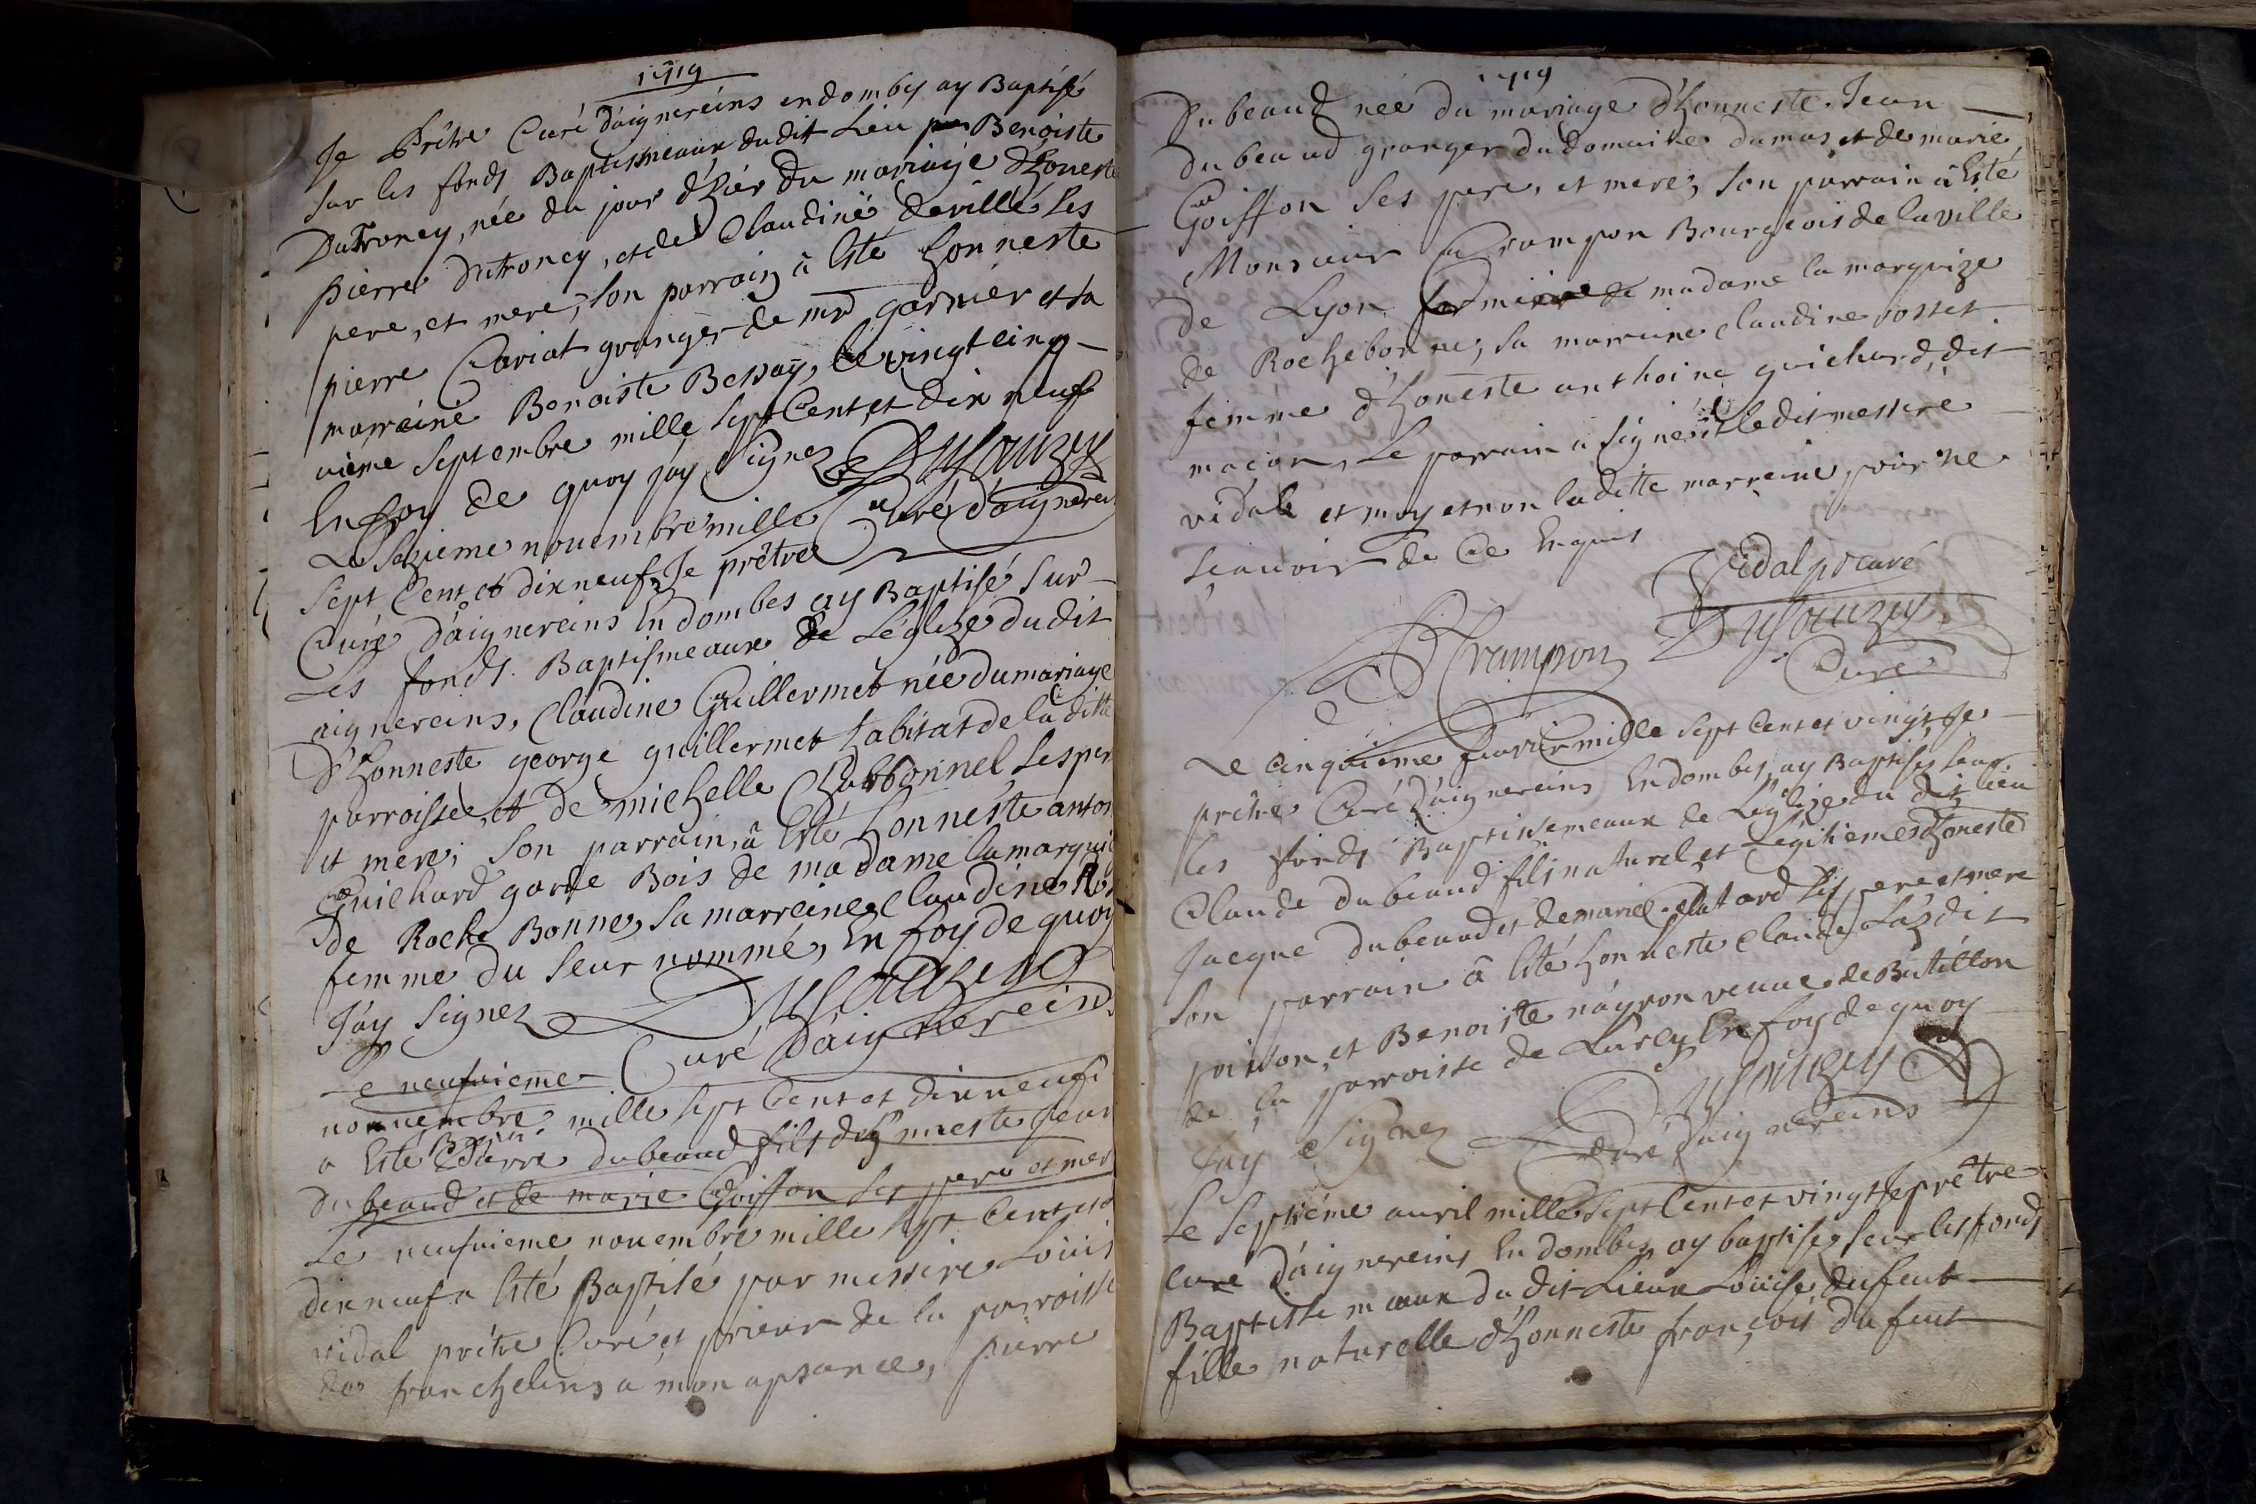 1719
Je Prêtre Curé d'aignereins en dombes ay Baptisé
sur les fonds Baptismeaux dudit Lieu Benoiste
Dutroncy, née du jour d'hier du mariage d'honeste
pierre Dutroncy, et de Claudine deville ses
pere, et mere, son parrain a esté honneste
pierre Cariat granger de mr garnier et sa
marreine Benoiste Bessay, le vingt cinq
uieme septembre mille sept Cent et dix neuf
En foy de quoy j'ay signez Dusauzey
Curé d'aignereins
Le saizieme nouembre mille
sept Cent et dix neuf Je prêtre
Curé d'aignereins En dombes ay Baptisé sur
Les fonds Baptismeaux de L'églize dudit
aignereins, Claudine Guillermet née du mariage
d'honneste george guillermet habitat de la ditte
parroisse, et de michelle Charbonnel ses per
et mere; son parrain, a Esté honneste antoi
Guichard garde Bois de madame la marquiz
de Roche Bonne, sa marreine Claudine Ros
femme du seur nommé, En foy de quoy
J'ay signez Dusauzey
Curé d'aignereins
Le neufuieme
nouuembre mille sept Cent et dix neuf
a Esté pierre dubeaud fils d'honneste Jean
dubeaud et de marie Goiffon ses pere et mer
Le neufuieme nouembre mille sept Cent et
dix neuf a Esté Baptisé par messire Louis
vidal prêtre Curé et prieur de la parroisse
de franchelins a mon apsance, pierre
1719
Dubeaud née du mariage d'honneste Jean
dubeaud granger du domaine dumas et de marie
Goiffon ses pere, et mere, son parrain a Esté
Monsieur Crampon Bourgeois de la ville
de Lyon fermier de madame la marquize
de Rochebonne, sa marraine Claudine rosset
femme d'honeste anthoine guichard, dit
maçon, Le parrain a signé et ledit messire
vidale et moy et non laditte marreine, pour ne
sçauoir de Ce Enquis
Vidal p curé
Crampon
Dusauzey
Curé
Le cinquieme feurier mille sept Cent et vingt Je
prêtre Curé d'aignereins En dombes, ay Baptisés seur
les fonds Baptissemeaux de L'églize du dit lieu
Claude dubeaud fils naturel et Légitieme d'honeste
Jacque dubeaud et de marie Clatard ses pere et mere
Son parrain a Esté honneste Claude Laz dit
poisson, et Benoiste nayron veuue de Butillon
de la parroisse de Lurcy En foy de quoy
J'ay signez Dusauzey
Curé d'aignereins
Le septiéme auril mille sept Cent et vingt Je prêtre
Curé d'aignereins En dombes ay baptisez seur les fonds
Baptissemeaux du dit Lieux Louise dufeut
fille naturelle d'honneste françois dufeut